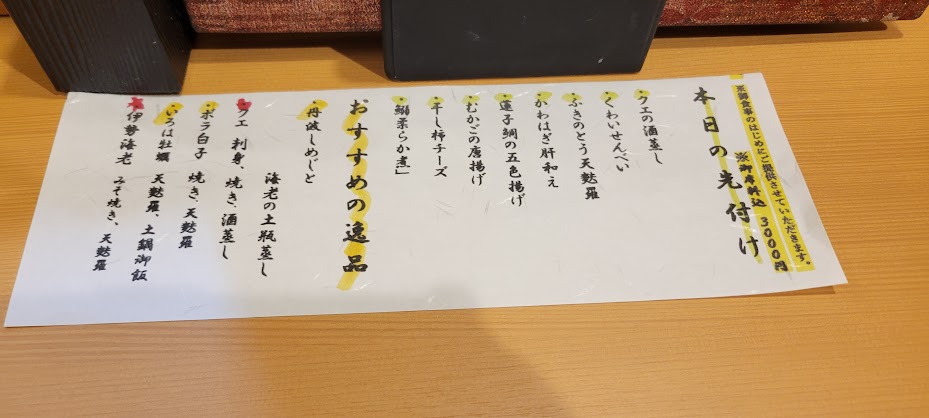 ※御食事のはじめにご提供させていただきます。
※御席料込 3000円
本日の先付け
クエの酒蒸し
くわいせんべい
ふきのとう天麩羅
かわはぎ肝和え
蓮子鯛の五色揚げ
むかごの唐揚げ
干し柿チーズ
鰯柔らか煮」
おすすめの逸品
丹波しめじと
海老の土瓶蒸し
クエ 刺身、焼き、酒蒸し
ボラ白子 焼き、天麩羅
いろは牡蠣 天麩羅、土鍋御飯
伊勢海老 みそ焼き、天麩羅